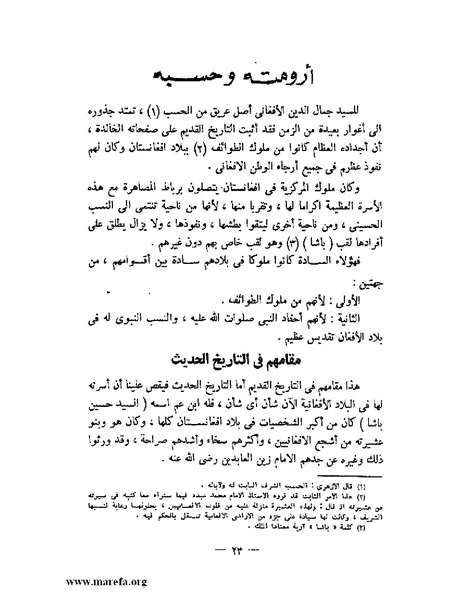 أرومته وحسبه
للسيد جمال الدين الأفغانى أصل عريق من الحسب (١) ، تمتد جذوره
الى أغوار بعيدة من الزمن فقد أثبت التاريخ القديم على صفحاته الخالدة ،
أن أجداده العظام كانوا من ملوك الطوائف (٢) ببلاد افغانستان وكان لهم
نفوذ عظيم فى جميع أرجاء الوطن الافغانى .
وكان ملوك المركزية فى افغانستان يتصلون برباط المصاهرة مع هذه
الأسرة العظيمة اكراما لها ، وتقربا منها ، لأنها من ناحية تنتمى الى النسب
الحسينى ، ومن ناحية أخرى ليتقوا بطشها ، ونفوذها ، ولا يزال يطلق على
أفرادها لقب ( باشا ) (٣) وهو لقب خاص بهم دون غيرهم .
فهؤلاء السادة كانوا ملوكا فى بلادهم سادة بين أقوامهم ، من
جهتين :
الأولى : لأنهم من ملوك الطوائف .
الثانية : لأنهم أحفاد النبى صلوات الله عليه ، والنسب النبوى له فى
بلاد الأفغان تقديس عظيم .
مقامهم فى التاريخ الحديث
هذا مقامهم فى التاريخ القديم أما التاريخ الحديث فيقص علينا أن أسرته
لها فى البلاد الأفغانية الآن شأن أى شأن ، فله ابن عم اسمه ( السيد حسين
باشا ) كان من أكبر الشخصيات فى بلاد افغانستان كلها ، وكان هو وبنو
عشيرته من أشجع الافغانيين ، وأكثرهم سخاء وأشدهم صراحة ، وقد ورثوا
ذلك وغيره عن جدهم الامام زين العابدين رضى الله عنه .
(١) قال الازهرى : الحسب الشرف الثابت له ولآبائه .
(٢) هذا الأمر الثابت قد قرره الاستاذ الامام محمد عبده فيما سنراه مما كتبه فى سيرته
عن عشيرته اذ قال : ولهذه العشيرة منزلة عليه من قلوب الأفغانيين ، يجلونها رعاية لنسبها
الشريف ، وكانت لها سيادة على جزء من الاراضى الافغانية تستقل بالحكم فيه .
(٣) كلمة « باشا » آرية معناها الملك .
— ٢٣ —
www.marefa.org